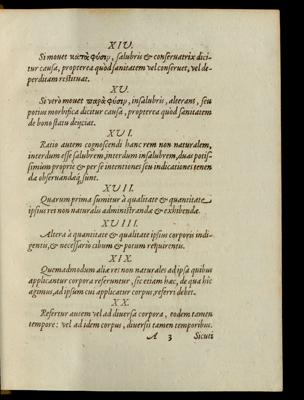 XIV.
Si mouet κατὰ φύσιν, salubris & conseruatrix dici
tur causa, propterea quòd sanitatem vel conseruet, vel de-
perditam restituat.
XV.
Si verò mouet παρὰ φύσιν, insalubris, alterans, seu
potius morbifica dicitur causa, propterea quòd sanitatem
de bono statu deijciat.
XVI.
Ratio autem cognoscendi hanc rem non naturalem,
interdum esse salubrem, interdum insalubrem, duas potis-
simùm propriè & per se intentiones seu indicationes tenen
da obseruandaq́; sunt.
XVII.
Quarum prima sumitur à qualitate & quantitate
ipsius rei non naturalis administrandæ & exhibendæ.
XVIII.
Altera à quantitate & qualitate ipsius corporis indi-
gentis, & necessariò cibum & potum requirentis.
XIX.
Quemadmodum aliæ res non naturales ad ipsa quibus
applicantur corpora referuntur, sic etiam hæc, de qua hic
agimus, ad ipsum cui applicatur corpus, referri debet.
XX.
Refertur autem vel ad diuersa corpora, eodem tamen
tempore: vel ad idem corpus, diuersis tamen temporibus.
A 3 Sicuti